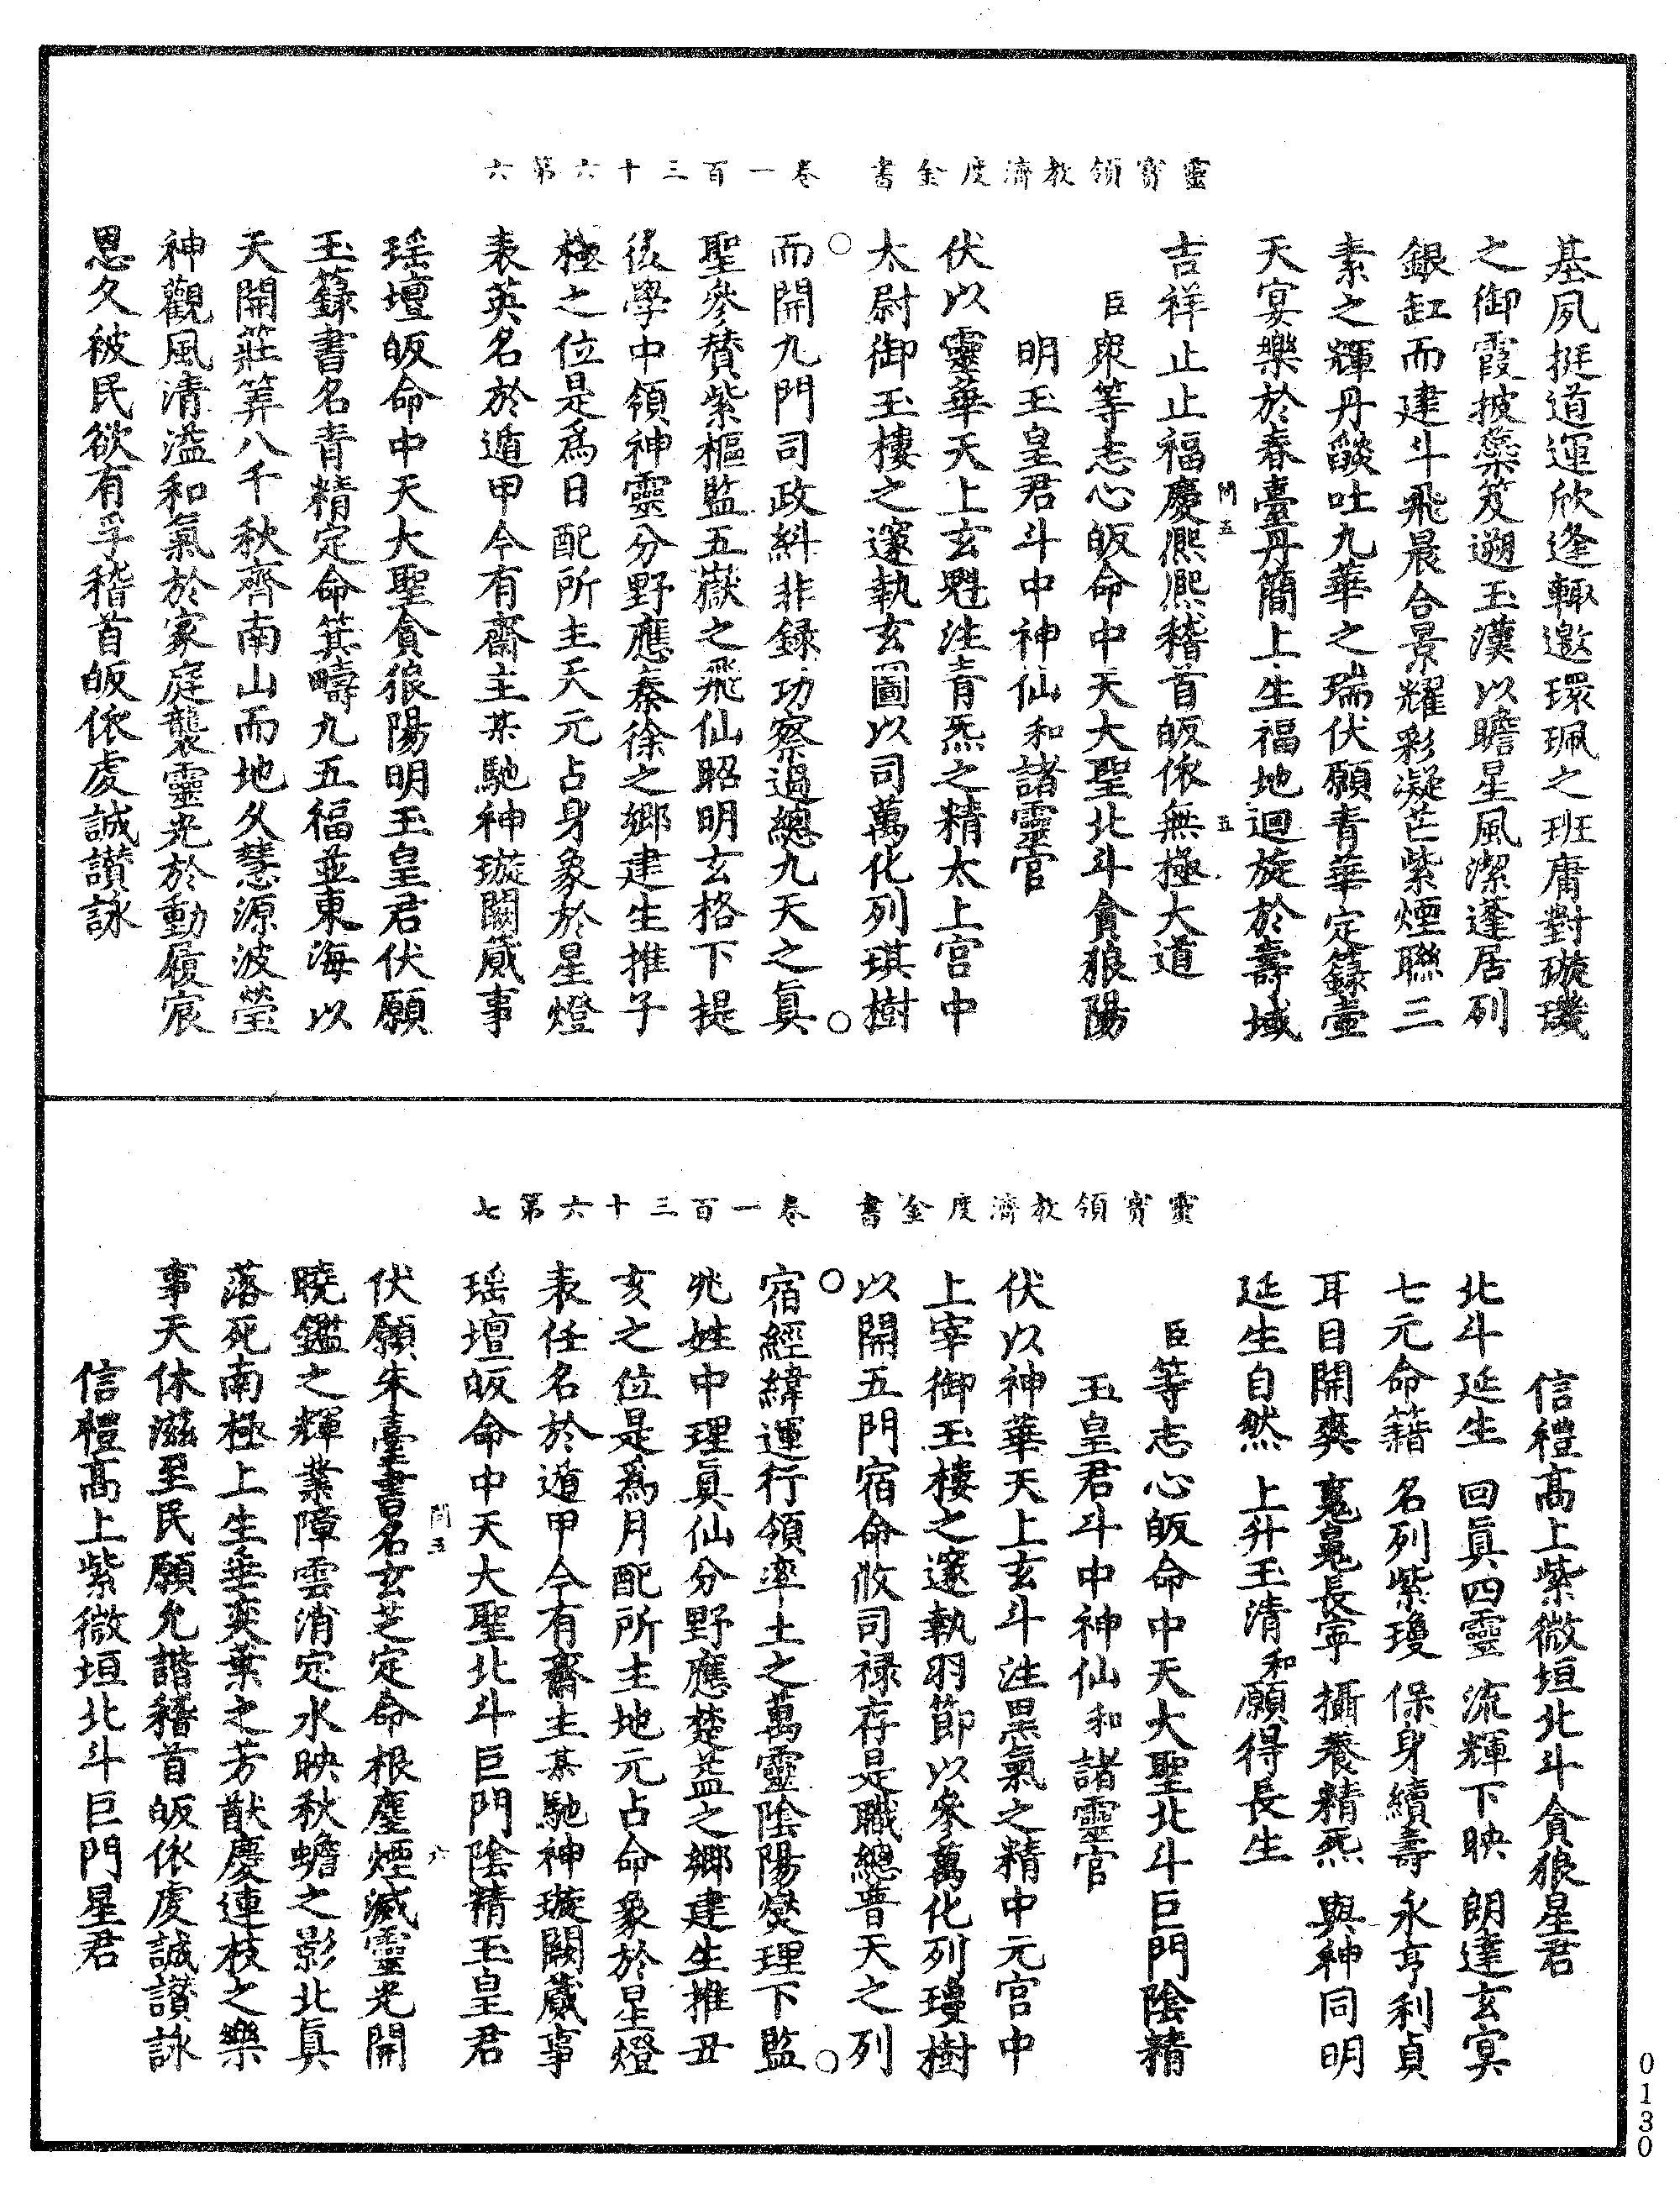 靈寶領教濟度金書　卷一百三十六第六
基夙挺道運欣逢輙邀環珮之班庸對璇璣
之御霞披蘂笈遡玉漢以瞻星風潔蓬居列
銀缸而建斗飛晨合景耀彩凝芒紫煙聯三
素之輝丹燄吐九華之瑞伏願青華定籙壷
天宴樂於春臺丹簡上生福地迴旋於壽域
吉祥止止福慶熈熈稽首皈依無極大道
臣衆等志心皈命中天大聖北斗貪狼陽
明玉皇君斗中神仙和諸靈官
伏以靈華天上玄魁注青炁之精太上宮中
太尉御玉樓之邃執玄圖以司萬化列琪樹
而開九門司政糾非録功察過總九天之眞
聖參賛紫樞監五嶽之飛仙昭明玄格下提
後學中領神靈分野應秦徐之鄉建生推子
極之位是爲日配所主天元占身象於星燈
表英名於遁甲今有齋主某馳神璇闕蕆事
瑶壇皈命中天大聖貪狼陽明玉皇君伏願
玉籙書名青精定命箕疇九五福並東海以
天開莊筭八千秋齊南山而地久慧源波瑩
神觀風清溢和氣於家庭襲靈光於動履宸
恩久被民欲有孚稽首皈依虔誠讃詠
問五
五
靈寶領教濟度金書　卷一百三十六第七
信禮高上紫微垣北斗貪狼星君
北斗延生　回眞四靈　流輝下映　朗達玄冥
七元命籍　名列紫瓊　保身續壽　永亨利貞
耳目開爽　䰟䰟長寜　攝養精炁　與神同明
延生自然　上升玉清　和願得長生
臣等志心皈命中天大聖北斗巨門陰精
玉皇君斗中神仙和諸靈官
伏以神華天上玄斗注黑氣之精中元宮中
上宰御玉樓之邃執羽節以參萬化列瓊樹
以開五門宿命攸司禄存是職總普天之列
宿經緯運行領率土之萬靈陰陽燮理下監
兆姓中理眞仙分野應楚益之鄉建生推丑
亥之位是爲月配所主地元占命象於星燈
表任名於遁甲今有齋主某馳神璇闕蕆事
瑶壇皈命中天大聖北斗巨門陰精玉皇君
伏願朱臺書名玄芝定命根塵煙滅靈光開
曉鑑之輝業障雲消定水映秋蟾之影北眞
落死南極上生垂奕葉之芳猷慶連枝之樂
事天休滋至民願允諧稽首皈依虔誠讃詠
信禮高上紫微垣北斗巨門星君
問五
六
0130